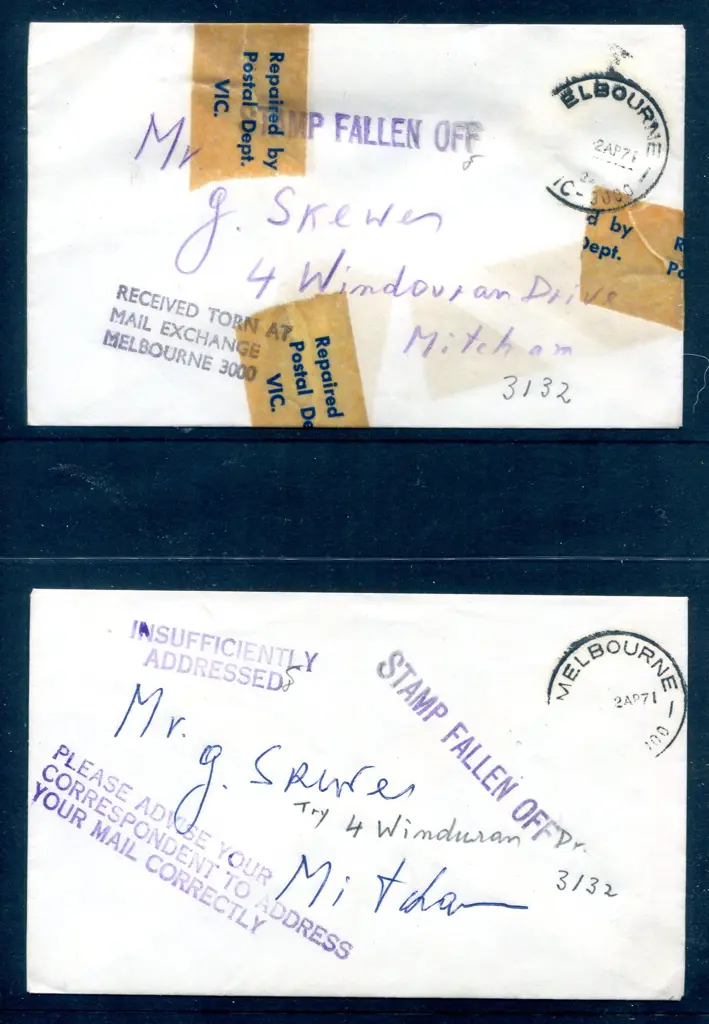 Repaired by
Postal Dept.
VIC.
STAMP FALLEN OFF
8
ELBOURNE
2AP71
IC-3000
Mr
G. Skewes
d by
Dept.
R
Po
4 Windouran Drive
RECEIVED TORN AT
MAIL EXCHANGE
MELBOURNE 3000
Mitcham
3132
Repaired
Postal De
VIC.
INSUFFICIENTLY
ADDRESSED
8
STAMP FALLEN OFF
MELBOURNE
2AP71
Mr.
G. Skewes
Try 4 Winduran Dr.
3132
PLEASE ADVISE YOUR
CORRESPONDENT TO ADDRESS
YOUR MAIL CORRECTLY
Mitcham